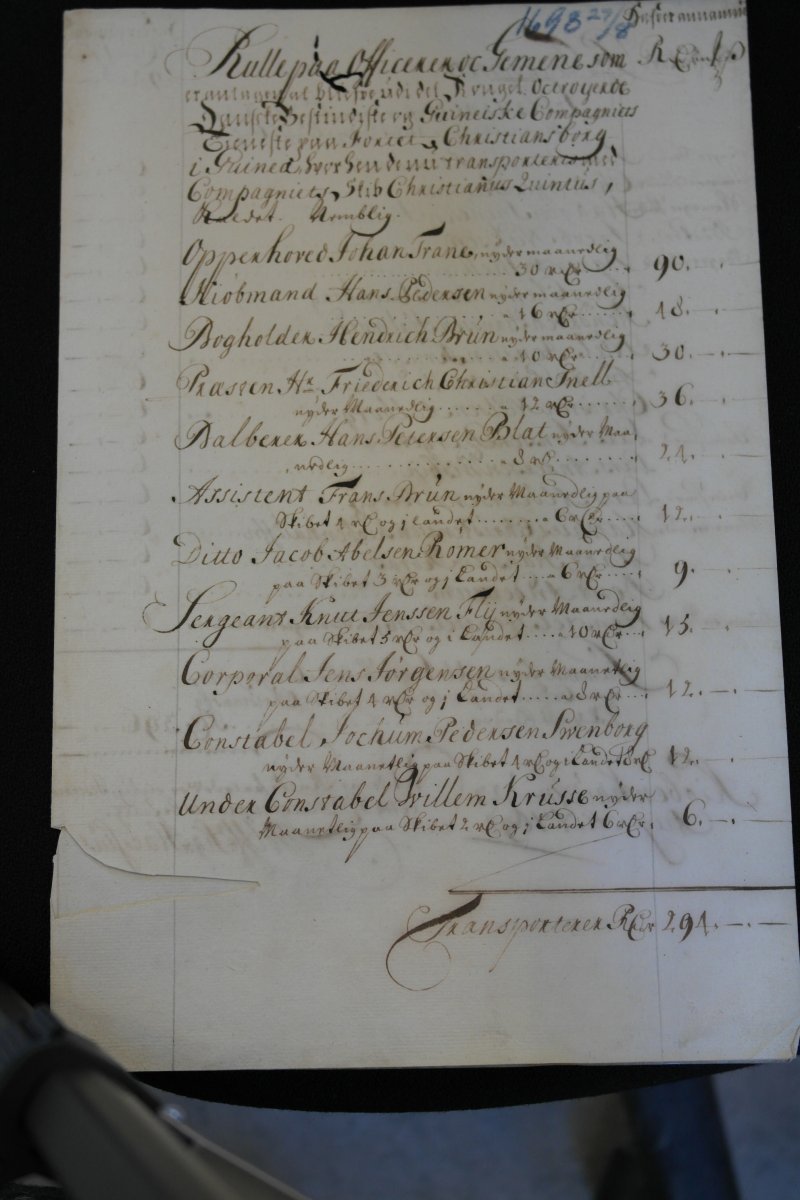 1698 27/8
Rulle paa Officerer oc Gemene som
er antagen at henfare udi det Kongel. Octroyerde
Danske Vestindiske og Guineiske Compagniets
Tieneste paa Fortet Christiansborg
i Guinea, hvor hen de nu transporteris med
Compagniets Skib Christianus Quintus,
Kaldet. Nemblig.
Opperhoved Johan Trane, nyder maanedlig
30 rdr 90.
Kiøbmand Hans Pedersen nyder maanedlig
16 rdr 48.
Bogholder Hendrich Brun nyder maanedlig
10 rdr 30.
Præsten Hr Friederich Christian Snell
nyder Maanedlig 12 rdr 36.
Balberer Hans Petersen Blat nyder Maa
nedlig 8 rdr 24.
Assistent Frans Brun nyder Maanedlig paa
Skibet 4 rd og j landet 6 rdr 12.
Ditto Jacob Abelsen Rømer nyder Maanedlig
paa Skibet 3 rdr og j Landet 6 rdr 9.
Sergeant Knut Jenssen Flÿ nyder Maanedlig
paa Skibet 5 rdr og i Landet 10 rdr 15.
Corporal Jens Jørgensen nyder Maanetlig
paa Skibet 4 rdr og j Landet 8 rdr 12.
Constabel Jochum Pedersen Swenborg
nyder Maanetlig paa Skibet 4 rd og i Landet 8 rd 12.
Under Constabel Willem Krusse nyder
Maanetlig paa Skibet 2 rd og j Landet 6 rdr. 6.
Transporterer Rdr 294.